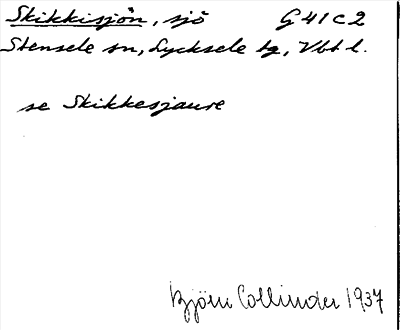 Skikkisjön, sjö G 41 c 2
Stensele sn, Lycksele tg, Vbt l.
se Skikkesjaure
Björn Collinder 1937